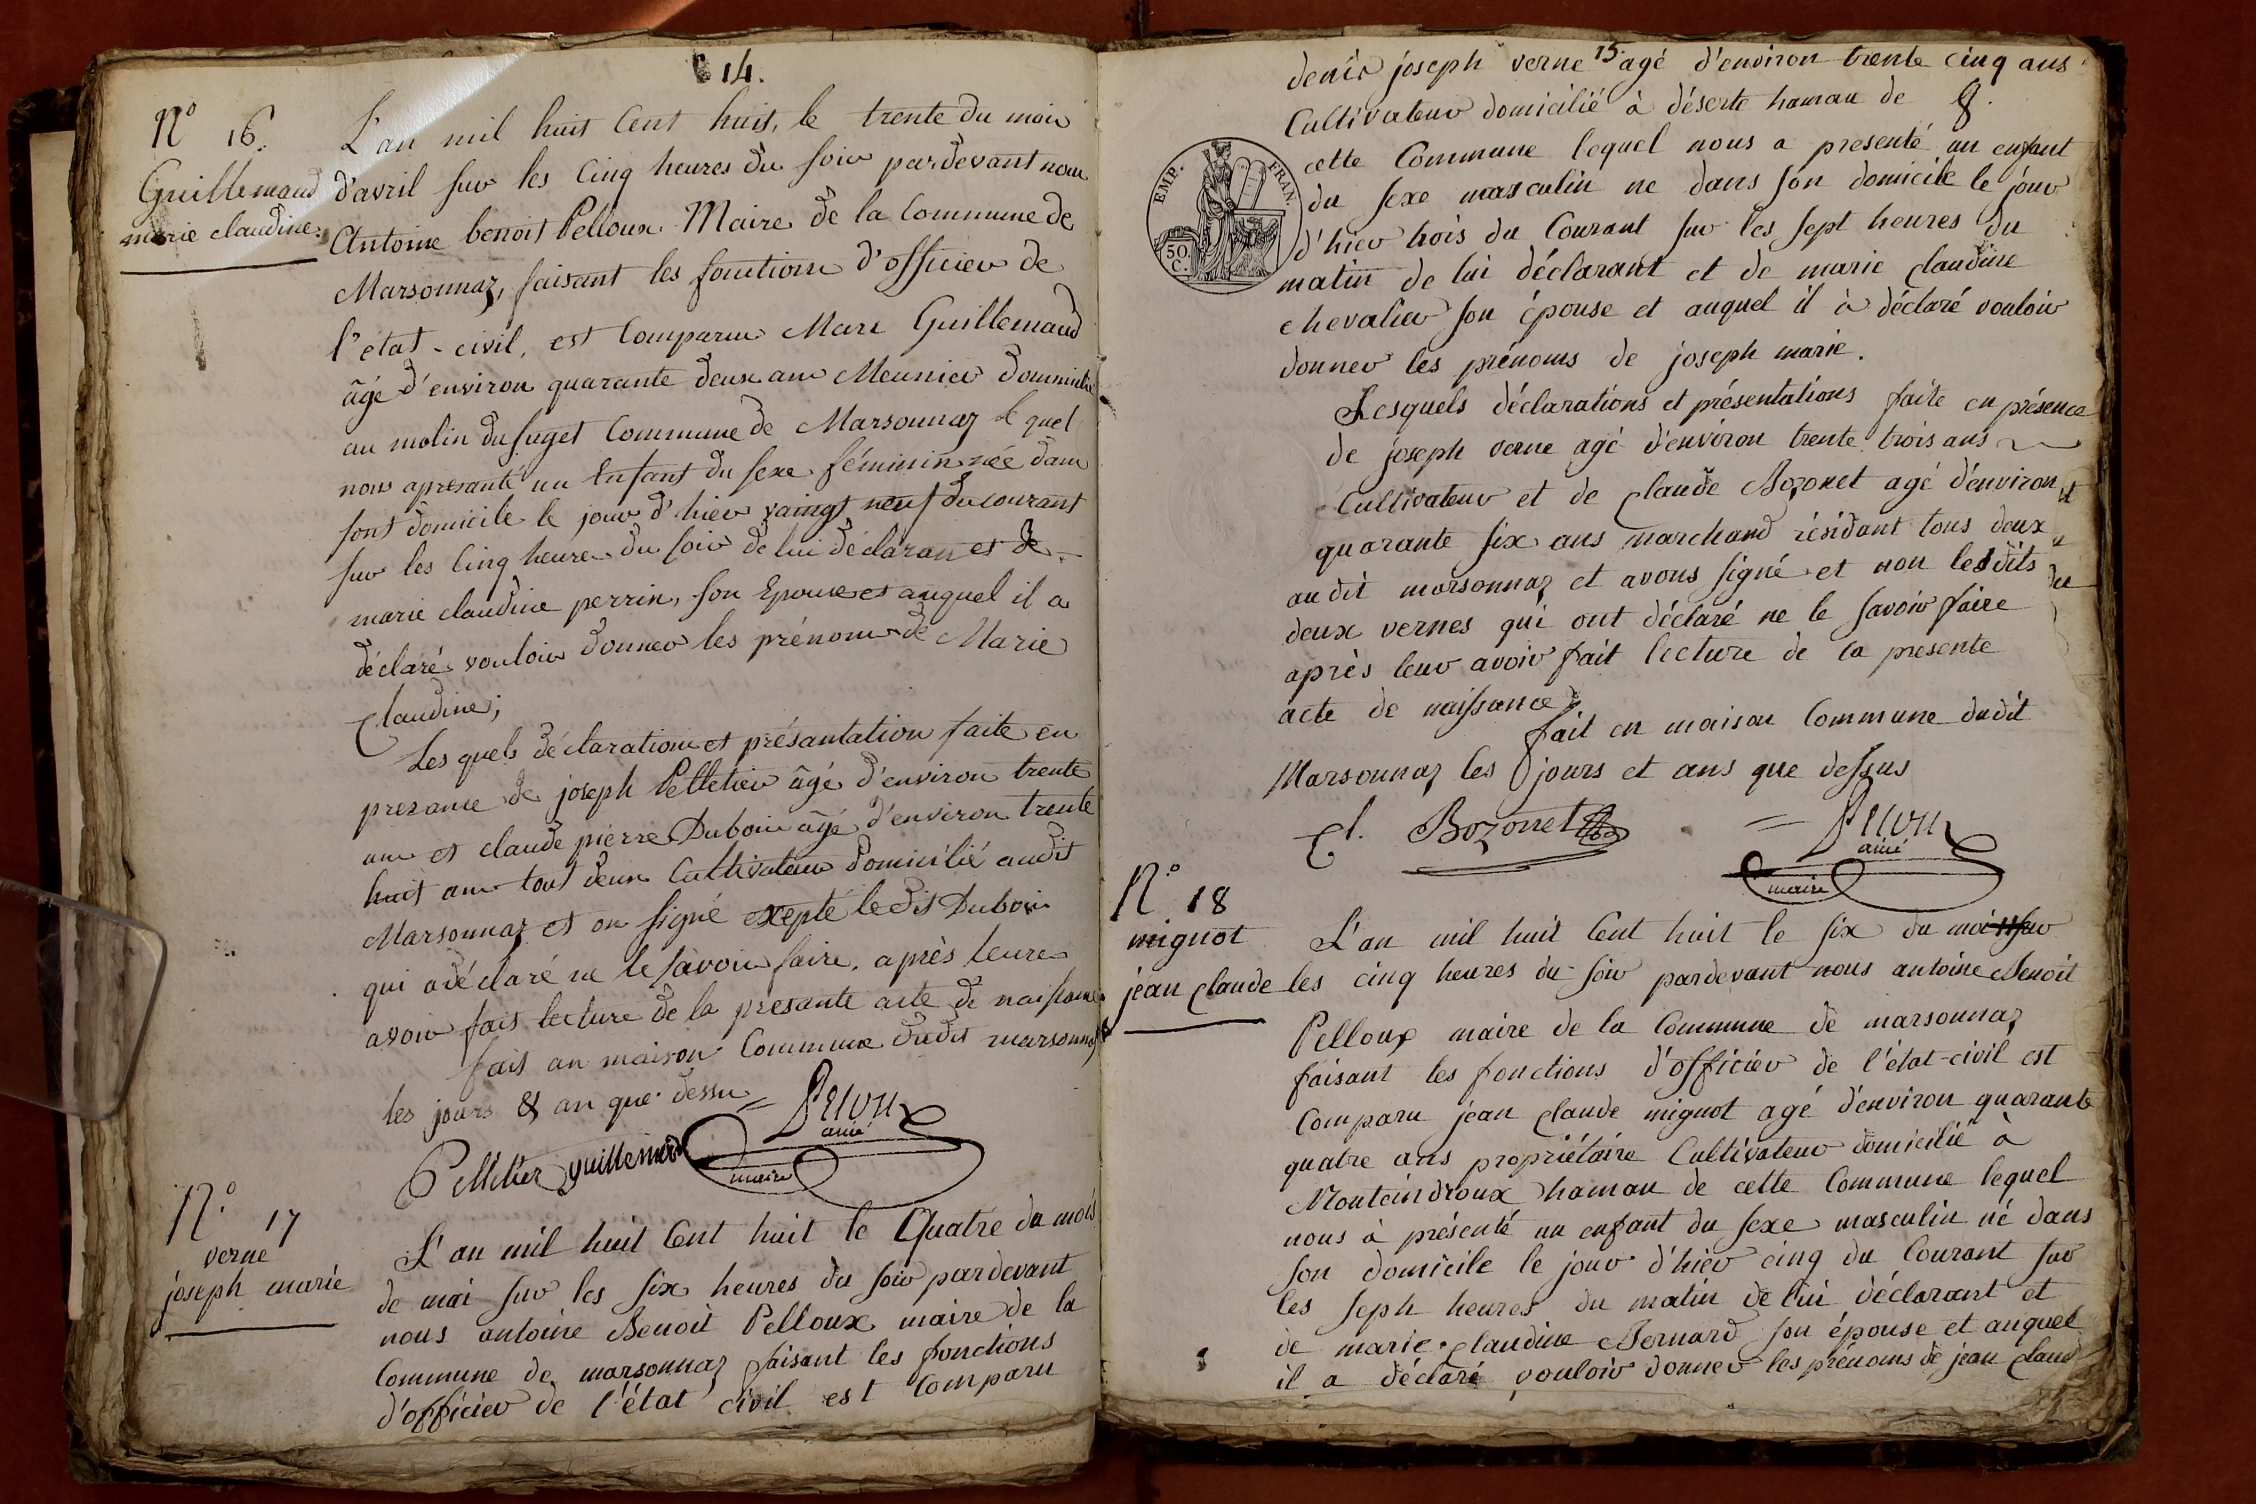 14.
N° 16.
Guillemaud
marie claudine.
L'an mil huit Cent huit, le trente du mois
d'avril sur les Cinq heures du soir pardevant nous
Antoine benoit Pelloux Maire de la Commune de
Marsonnaz, faisant les fonctions d'officier de
l'etat-civil, est Comparu Marc Guillemaud
âgé d'environ quarante deux ans Meunier Dommicilié
au molin du Suget Commune de Marsonnaz le quel
nous apresanté un Enfant du sexe féminin née dans
sont domicile le jour d'hier vaingt neuf du courant
sur les Cinq heures du soir de lui déclaran et de
marie claudine perrin, son Epouse et auquel il a
déclaré vouloir donner les prénoms de Marie
Claudine;
Les quels déclaration et présantation faite en
prezance de joseph Pelletier âgé d'environ trente
ans et claude pierre Dubois âgé d'environ trente
huit ans tout deux Cultivateur domicilié audit
Marsonnaz et on signé excepté ledit Dubois
qui a déclaré ne le savoir faire, après leure
avoir fait lecture de la presante acte de naissance
fait an maison Commune dudit marsonnaz
les jours & an que dessus
Pelletier guillemaud Pelloux
ainé
maire
N° 17
verne
joseph marie
L'an mil huit Cent huit le Quatre du mois
de mai sur les six heures du soir pardevant
nous antoine Benoit Pelloux maire de la
Commune de marsonnaz faisant les fonctions
d'officier de l'état civil est Comparu
15.
denis joseph verne agé d'environ trente cinq ans
Cultivateur domicilié à déserte hamau de
cette Commune lequel nous a presenté un enfant
du sexe masculin ne dans son domicile le jour
d'hier trois du Courant sur les sept heures du
matin de lui déclarant et de marie claudine
chevalier son épouse et auquel il à déclaré vouloir
donner les prénoms de joseph marie.
Lesquels déclarations et présentations faite en présence
de joseph verne agé d'environ trente trois ans
Cultivateur et de Claude Bozonet agé d'environ
quarante six ans marchand résidant tous deux
au dit marsonnaz et avons signé et non lesdits
deux vernes qui ont déclaré ne le savoir faire
après leur avoir fait lecture de la presente
acte de naissance
fait en maison Commune dudit
Marsonnaz les jours et ans que dessus
Cl. Bozonnet Pelloux
ainé
maire
EMP. FRAN.
50.
C.
N° 18
mignot
jean Claude
L'an mil huit Cent huit le six du mois sur
les cinq heures du soir pardevant nous antoine Benoit
Pelloux maire de la Commune de marsonnaz
faisant les fonctions d'officier de l'état-civil est
Comparu jean Claude mignot agé d'environ quarante
quatre ans propriétaire Cultivateur domicilié à
Monteindroux hamau de cette Commune lequel
nous à présenté un enfant du sexe masculin né dans
son domicile le jour d'hier cinq du Courant sur
les seph heures du matin de lui déclarant et
de marie claudine Bernard son épouse et auquel
il a déclaré vouloir donner les prénoms de jean Claud